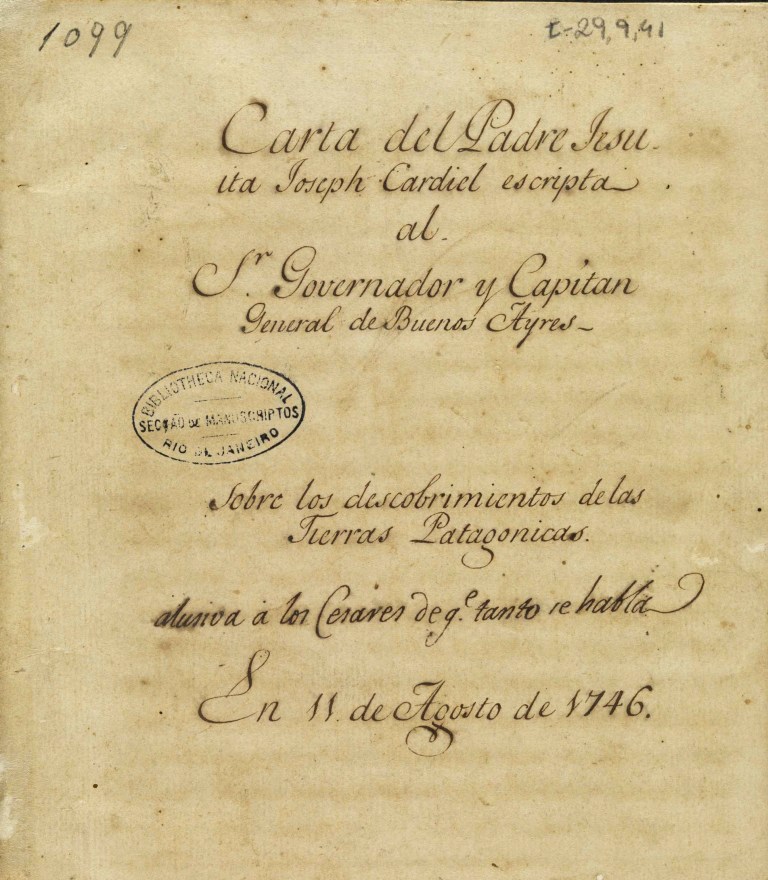 1099
I-29,9,41
Carta del Padre Jesu-
ita Joseph Cardiel escripta
al
S.r Governador y Capitan
General de Buenos Ayres
BIBLIOTHECA NACIONAL
SECÇÃO DE MANUSCRIPTOS
RIO DE JANEIRO
Sobre los descobrimientos de las
Tierras Patagonicas.
alusiva à los Cesares de q.e tanto se habla
En 11 de Agosto de 1746.